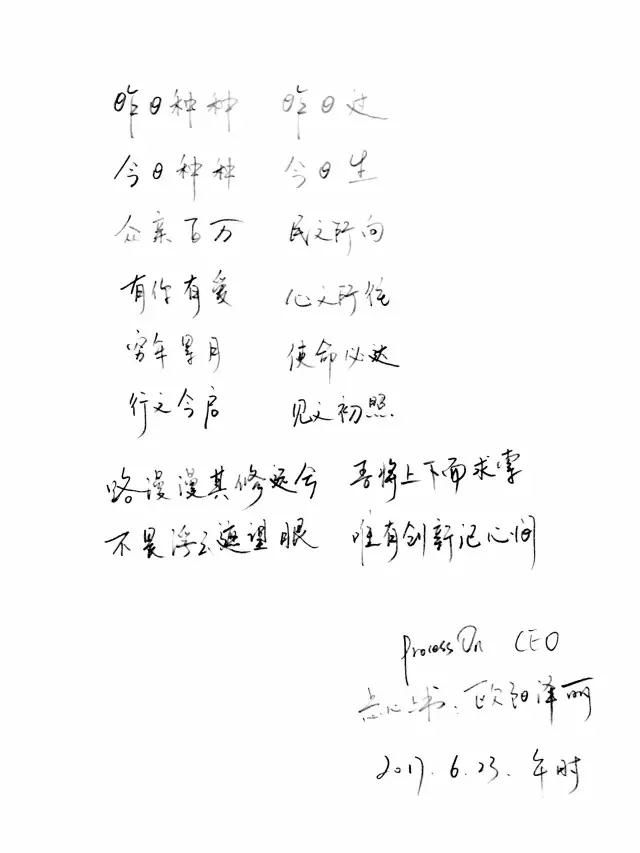 昨日种种 昨日过
今日种种 今日生
众亲百万 民文所向
有你有爱 心文所往
穷年累月 使命必达
行文今启 见文初照
路漫漫其修远兮 吾将上下而求索
不畏浮云遮望眼 唯有创新记心间
ProcessOn CEO
欧阳泽丽
2017.6.23.午时